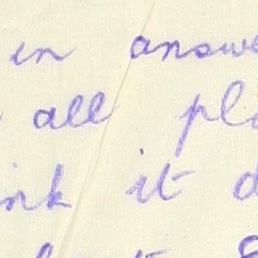 in answe
all pl
ink it d